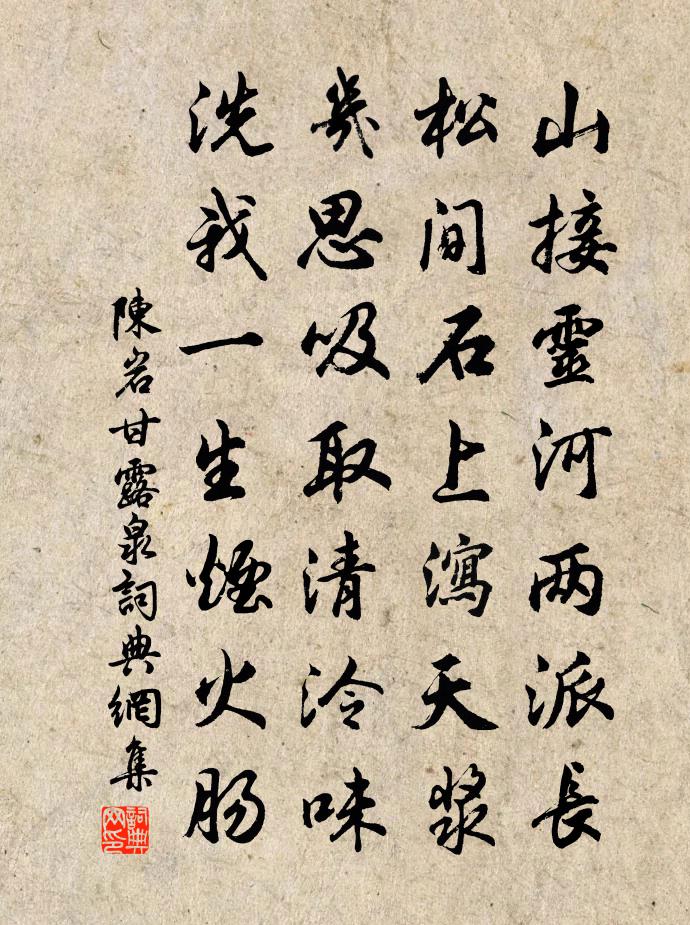 山接靈河两派長
松间石上瀉天漿
幾思吸取清泠味
洗我一生煙火肠
陳岩甘露泉詞典網集
詞典网印